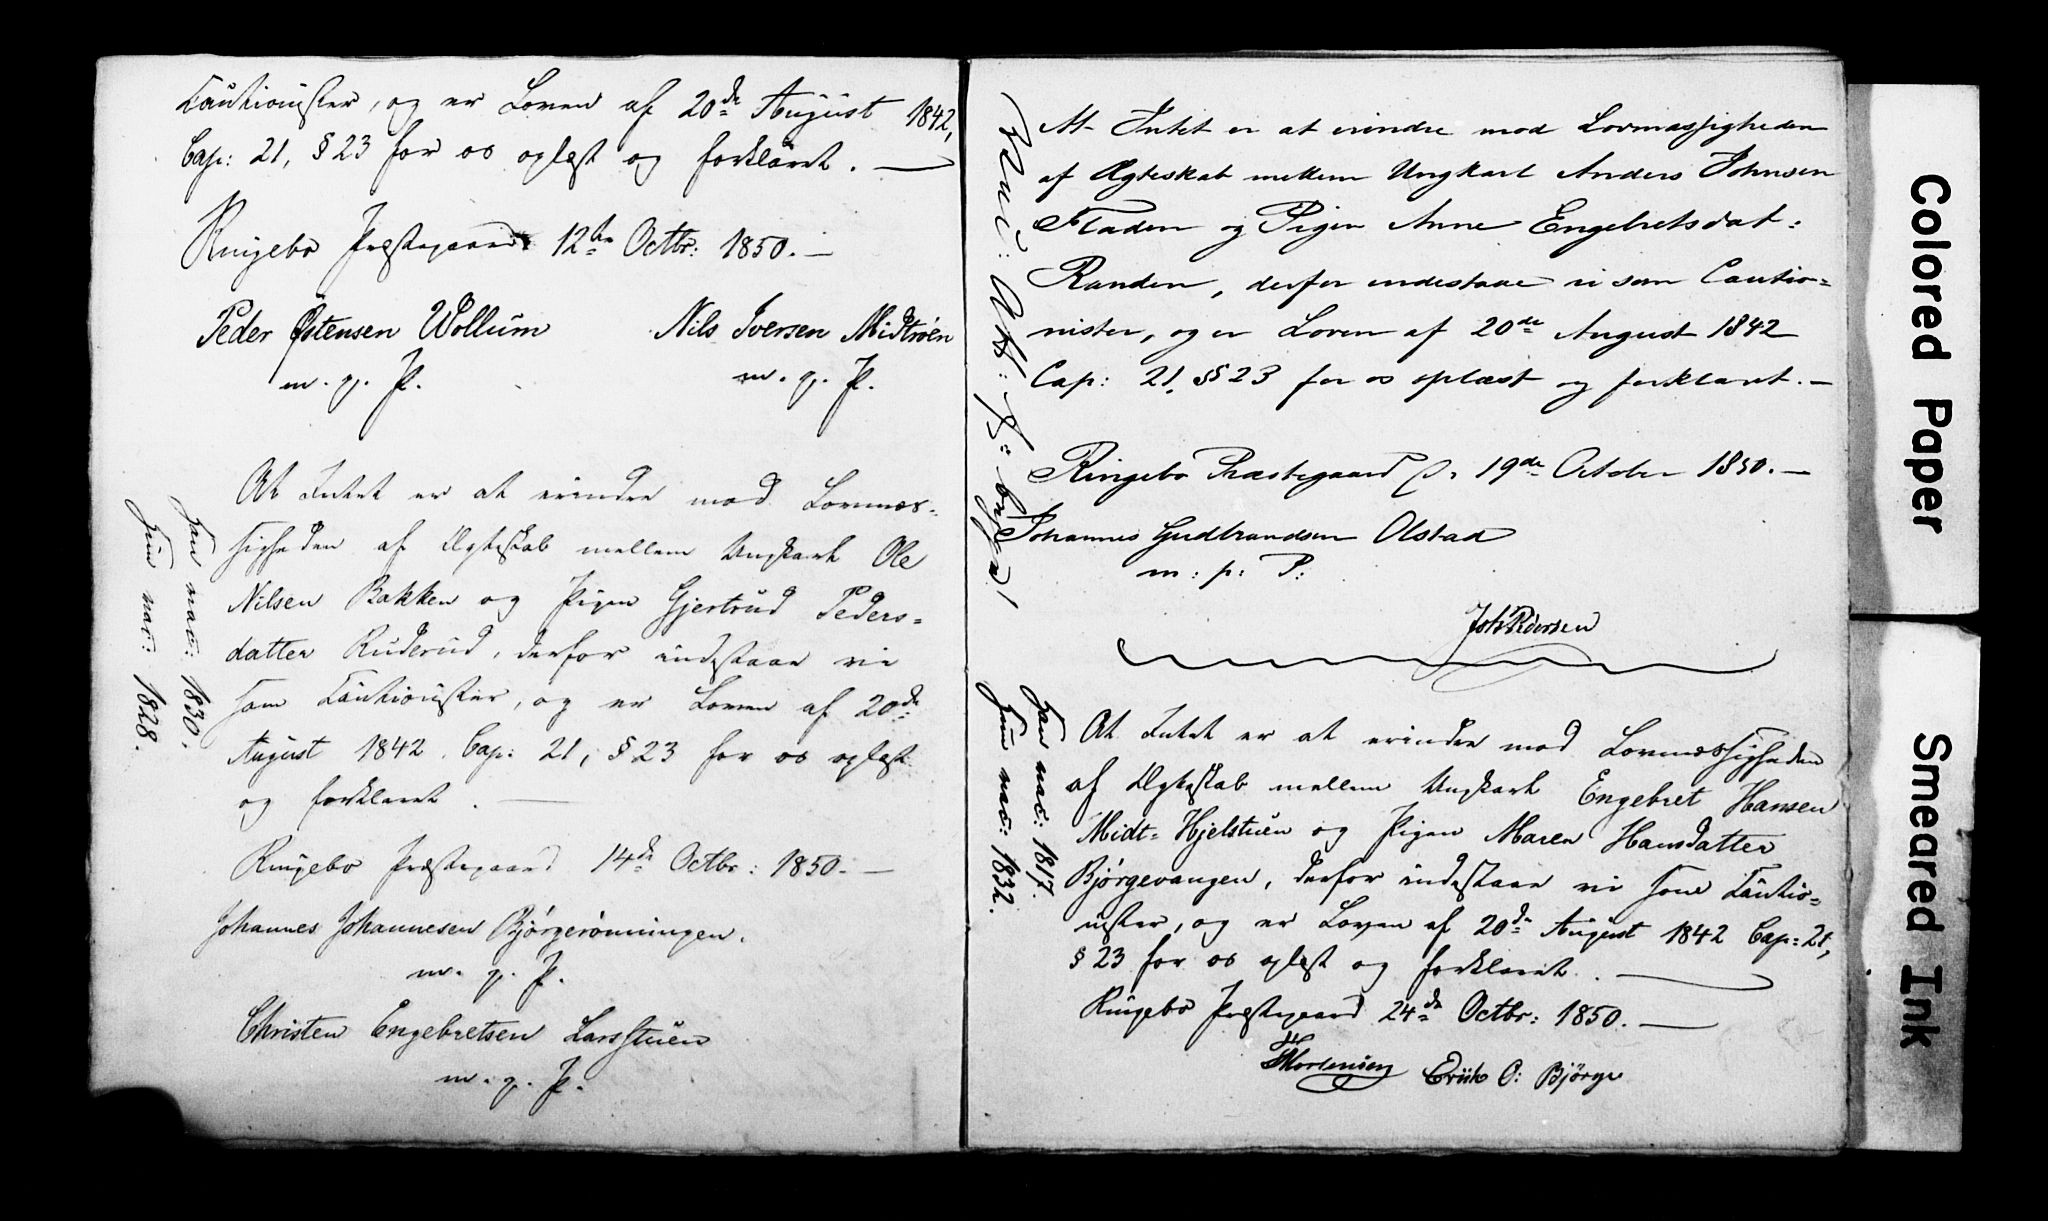 Cautionister, og er Loven af 20de August 1842,
Cap: 21, § 23 for os oplæst og forklaret. —
Ringebo Præstegaard 12te Octbr: 1850. —
Peder Østensen Wollum
Nils Iversen Midtrøen
m. p. P.
m. p. P.
At Intet er at erindre mod Lovmæs-
sigheden af Ægteskab mellem Ungkarl Ole
Nilsen Bakken og Pigen Gjertrud Peders-
datter Ruderud, derfor indestaae vi
som Cautionister, og er Loven af 20de
August 1842. Cap: 21, § 23 for os oplæst
og forklaret. —
Ringebo Præstegaard 14de Octbr: 1850. —
Johannes Johannesen Bjørgerønningen.
m. p. P.
Christen Engebretsen Larsstuen
m. p. P.
han nat: 1830.
hun nat: 1828.
At Intet er at erindre mod Lovmæssigheden
af Ægteskab mellem Ungkarl Anders Johnsen
Fladen og Pigen Anne Engebretsdat:
Randen, derfor indestaae vi som Cautio=
nister, og er Loven af 20de August 1842
Cap: 21, §§ 23 for os oplæst og forklaret. —
Ringebo Præstegaard d. 19de October 1850. —
Johannes Gudbrandsen Olstad
m: p: P:
Joh: Pedersen
At Intet er at erindre mod Lovmæssigheden
af Ægteskab mellem Ungkarl Engebret Hansen
Midt=Hjelstuen og Pigen Maren Hansdatter
Bjørgevangen, derfor indestaae vi som Cautio=
nister, og er Loven af 20de August 1842 Cap: 21,
§ 23 for os oplæst og forklaret. —
Ringebo Præstegaard 24de Octbr: 1850. —
Mortensen Erik O: Bjørge
han nat: 1817.
hun nat: 1832.
Colored Paper
Smeared Ink